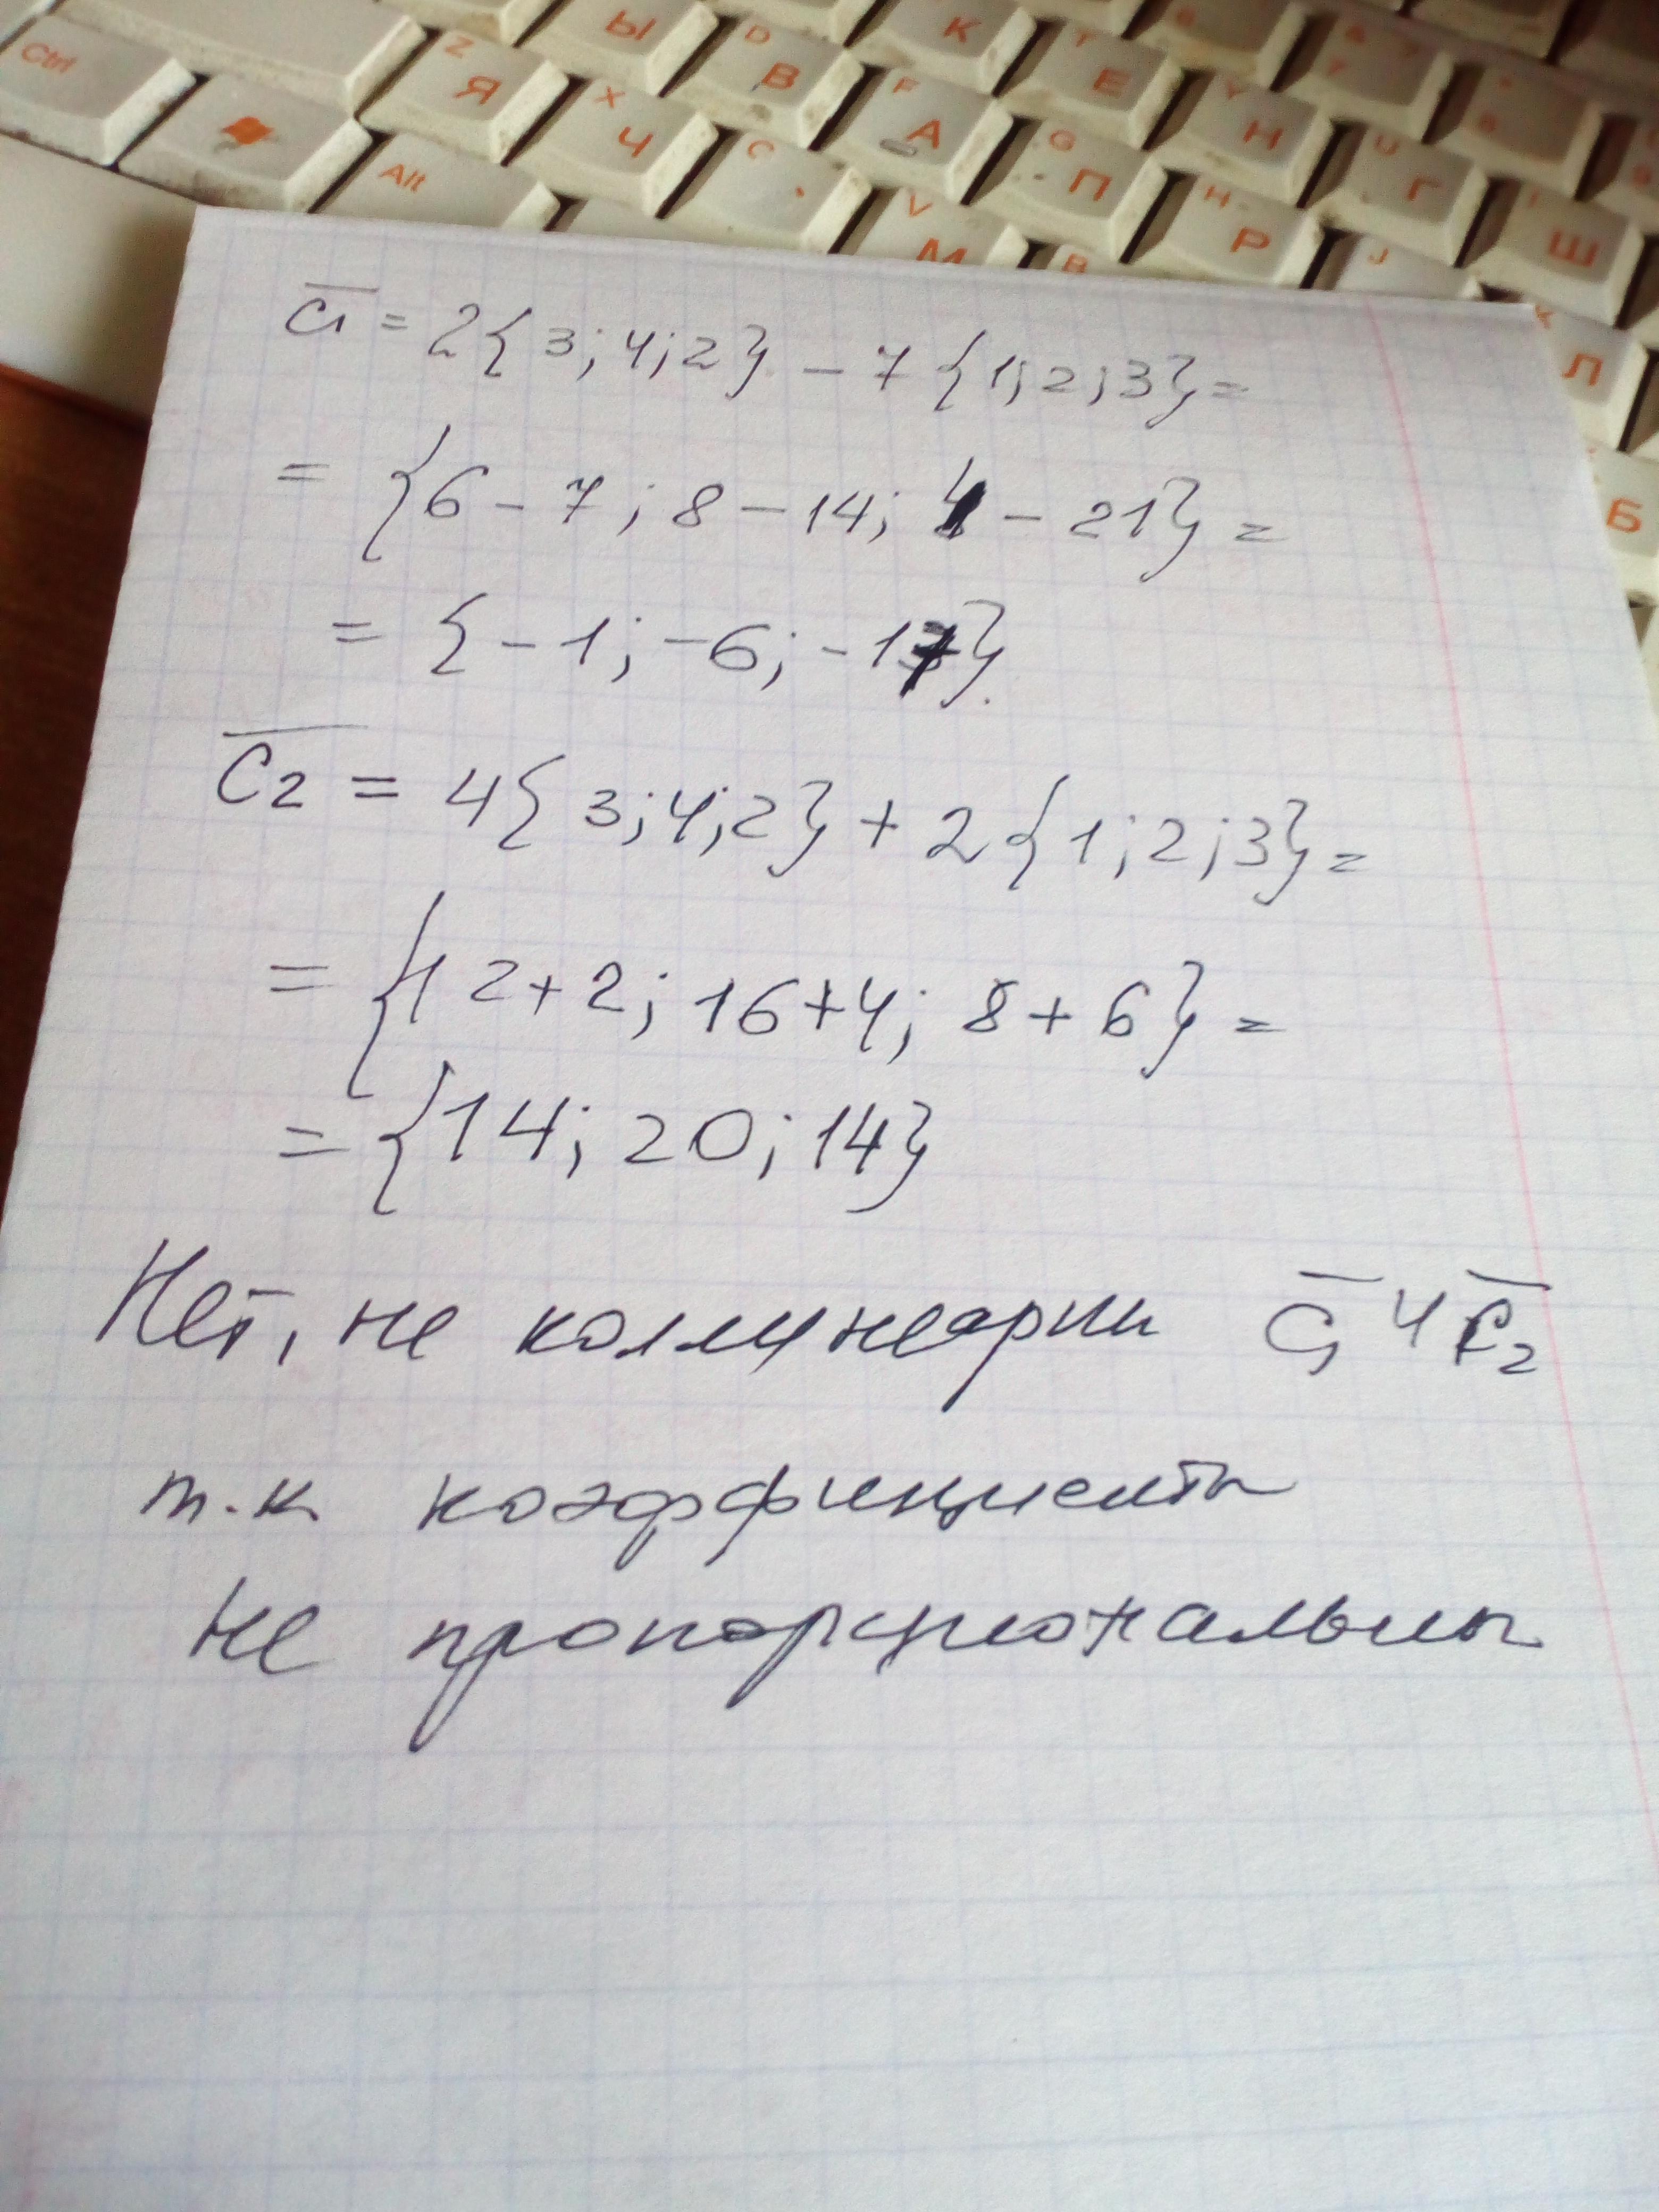 Ctrl Z Я Ы X Ч D В К F А T Е Y Н G П U Г H Р Ш
Alt C V М B J K Л Б
c̅₁ = 2{3; 4; 2} - 7{1; 2; 3} =
= {6 - 7; 8 - 14; 4 - 21} =
= {-1; -6; -17}.
c̅₂ = 4{3; 4; 2} + 2{1; 2; 3} =
= {12 + 2; 16 + 4; 8 + 6} =
= {14; 20; 14}
Нет, не коллинеарны c̅₁ и c̅₂
т.к коэффициенты
не пропорциональны